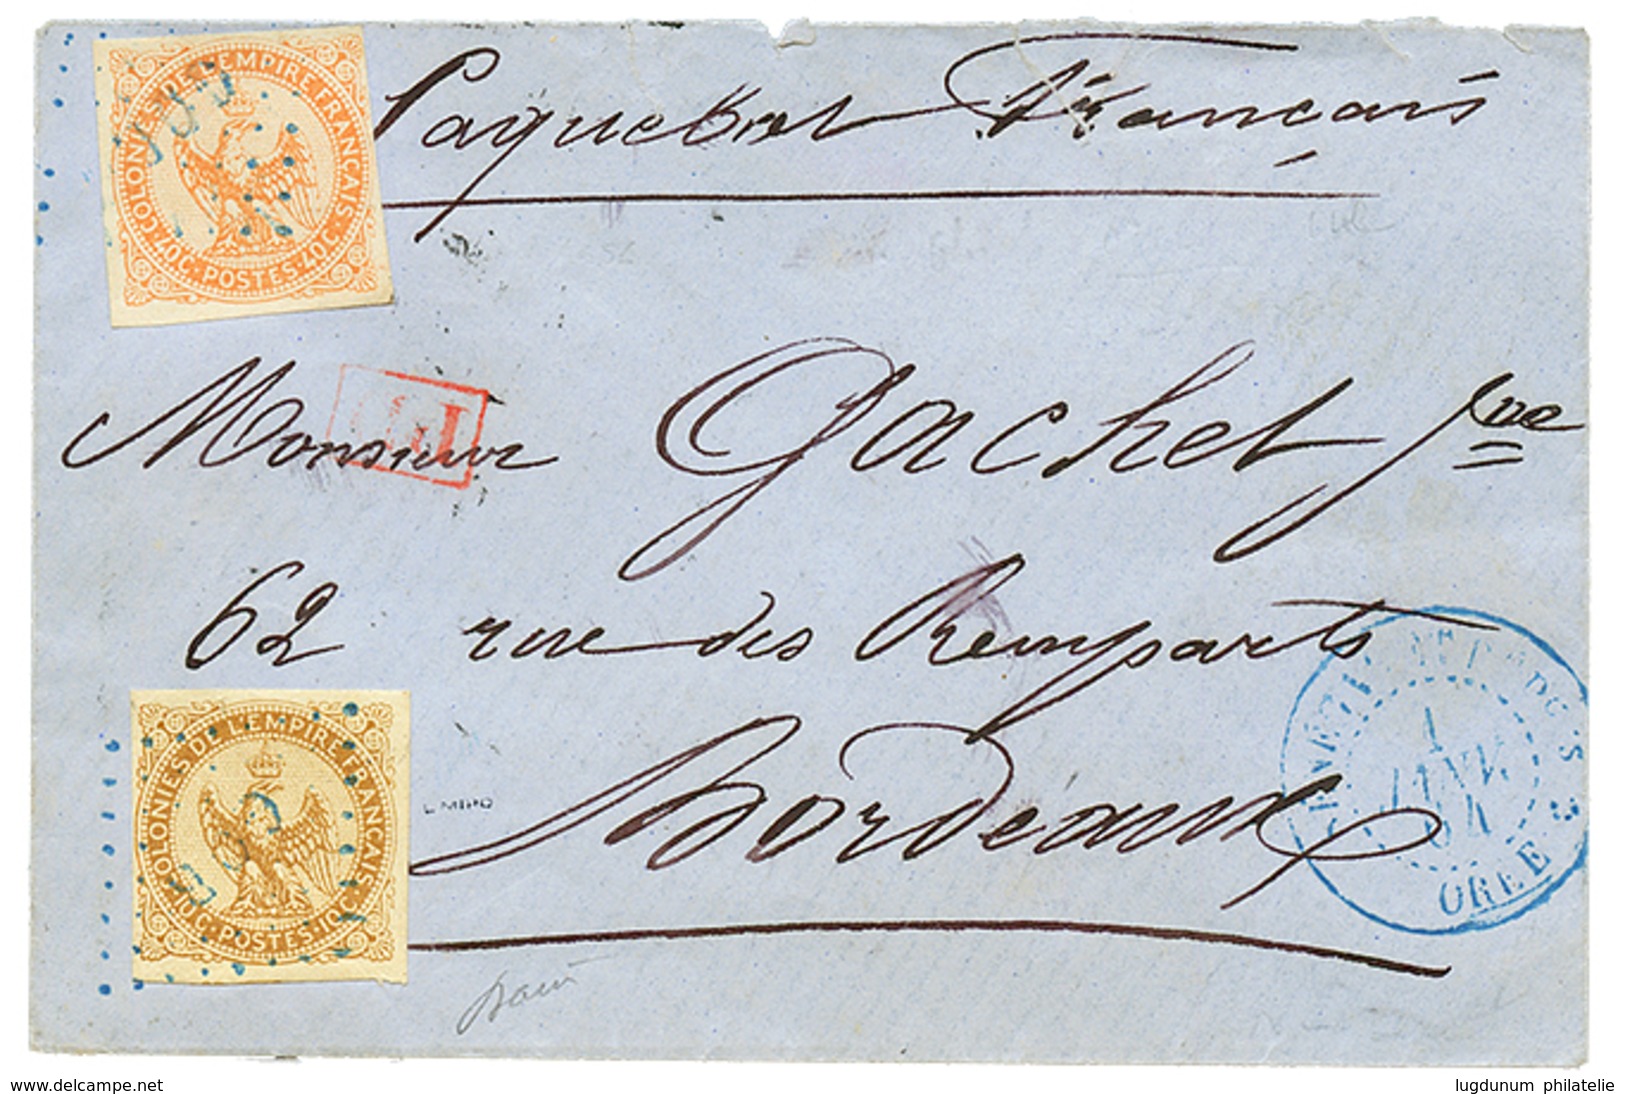 COLONIES DE L'EMPIRE FRANÇAIS
40C · POSTES · 40C
Paquebot Français
Monsieur Gachet Jne
62 rue des Remparts
Bordeaux
COLONIES DE L'EMPIRE FRANÇAIS
10C · POSTES · 10C
1
JANV.
64
www.delcampe.net
lugdunum philatelie